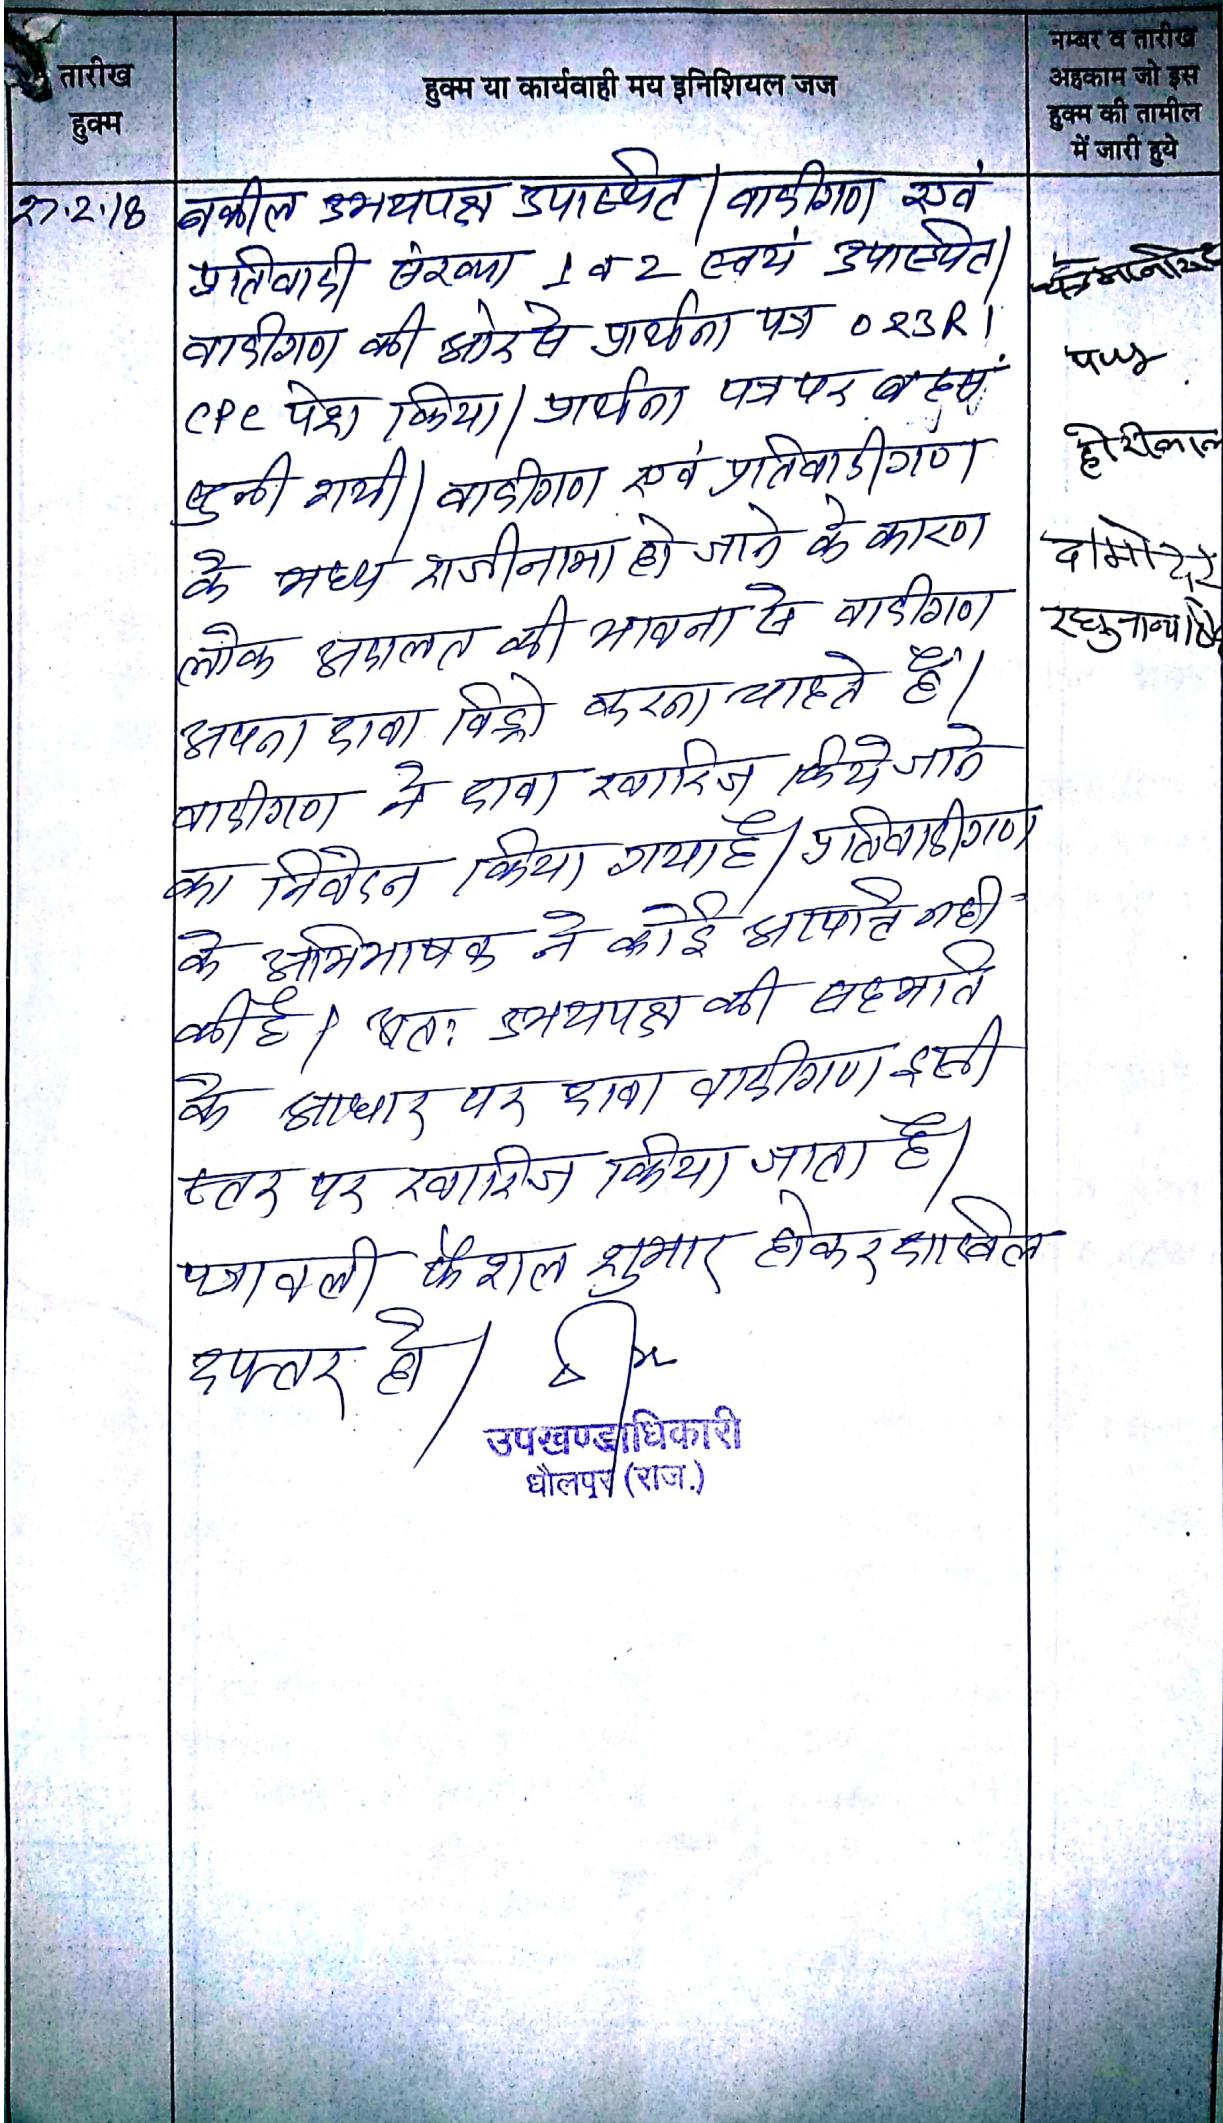 तारीख
हुक्म
हुक्म या कार्यवाही मय इनिशियल जज
नम्बर व तारीख
अहकाम जो इस
हुक्म की तामील
में जारी हुये
27.2.18
वकील उभयपक्ष उपस्थित। वादीगण एवं
प्रतिवादी संख्या 1 व 2 स्वयं उपस्थित।
वादीगण की ओर से प्रार्थना पत्र O 23 R 1
CPC पेश किया। प्रार्थना पत्र पर बहस
सुनी गयी। वादीगण एवं प्रतिवादीगण
के मध्य राजीनामा हो जाने के कारण
लोक अदालत की भावना से वादीगण
अपना दावा विड्रो करना चाहते हैं।
वादीगण ने दावा खारिज किये जाने
का निवेदन किया गया है। प्रतिवादीगण
के अभिभाषक ने कोई आपत्ति नहीं
की है। अतः उभयपक्ष की सहमति
के आधार पर दावा वादीगण इसी
स्तर पर खारिज किया जाता है।
पत्रावली फैशल शुमार होकर दाखिल
दफ्तर हो।
उपखण्डाधिकारी
धौलपुर (राज.)
होरीलाल
दामोदर